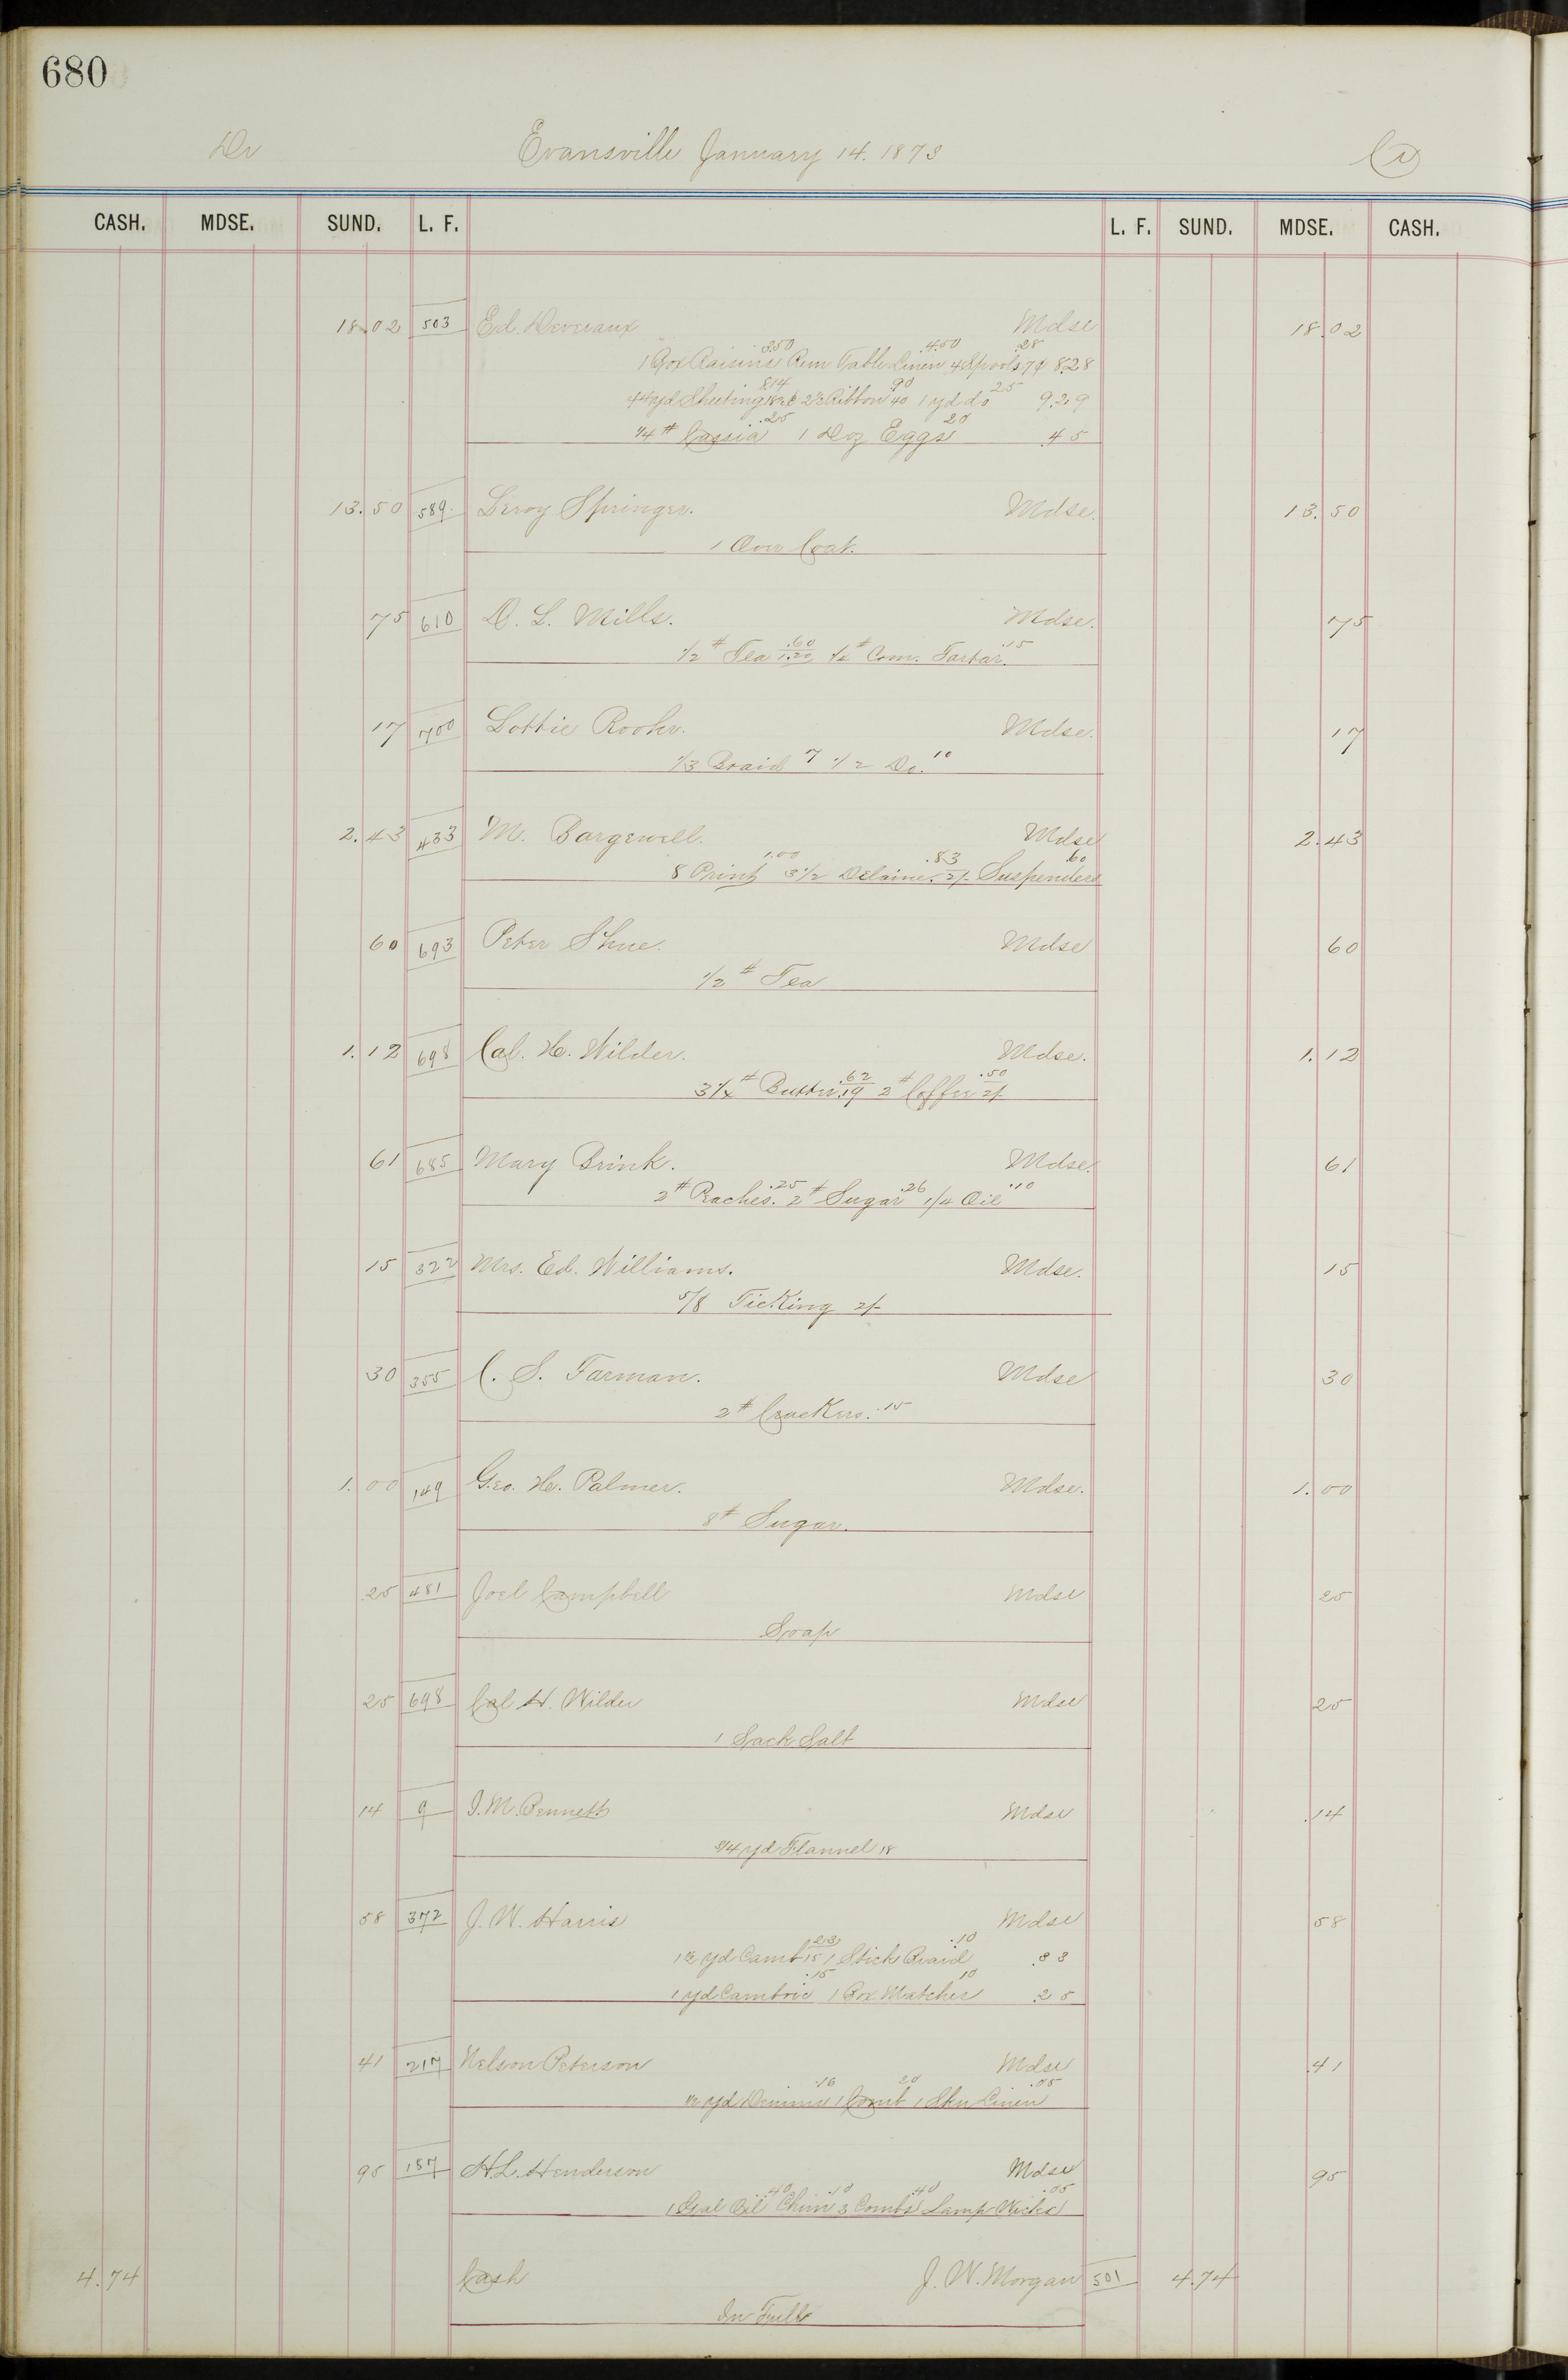 680
Dr Evansville January 14. 1873 Cr
CASH. MDSE. SUND. L. F. L. F. SUND. MDSE. CASH.
18.02 503 Ed. Devereaux Mdse 18.02
3.50 4.50 .28
1 Box Raisins Rem Table Linen 4 Spools 7¢ 8.28
8.14 .90 25
44 yd Sheeting 18½ 2¼ Ribbon 40 1 yd do 9.29
.25 20
1/4 # Cassia 1 Doz Eggs 45
13.50 589. Leroy Springer. Mdse. 13.50
1 Over Coat.
75 610 D. L. Mills. Mdse. 75
1/2 # Tea .60 1.20 1/4 # Com. Tartar. .15
17 700 Lottie Mdse. 17
1/3 Braid 7 1/2 Do. 10
2.43 433 M. Bargewell. Mdse 2.43
1.00 .83 .60
8 Print 3 1/2 Delaine. 2/- Suspenders
60 693 Peter Shue. Mdse 60
1/2 # Tea
1.12 698 Cal. H. Wilder. Mdse. 1.12
3 1/4 # Butter .62 .19 2 # Coffee .50 2/-
61 685 Mary Brink. Mdse. 61
2 # Peaches. .25 2 # Sugar .26 1/4 Oil .10
15 322 Mrs. Ed. Williams. Mdse. 15
5/8 Ticking 2/-
30 355 C. S. Farman. Mdse 30
2 # Crackers. .15
1.00 149 Geo. H. Palmer. Mdse. 1.00
8 # Sugar.
25 481 Joel Campbell Mdse 25
Soap
25 698 Cal H. Wilder Mdse 25
1 Sack Salt
14 9 I. M. Bennett Mdse .14
3/4 yd Flannel 18
58 372 J. W. Harris Mdse 58
.23 .10
1½ yd Camb 15 1 Stick Braid .33
.15 10
1 yd Cambric 1 Box Matches .25
41 217 Nelson Peterson Mdse .41
.16 20 .05
½ yd Denims 1 Comb 1 Skn Linen
95 157 H. L. Henderson Mdse 95
.40 .10 .40 .05
1 Gal Oil Chim 3 Combs Lamp Wicks
4.74 Cash J. W. Morgan 501 4.74
In Full